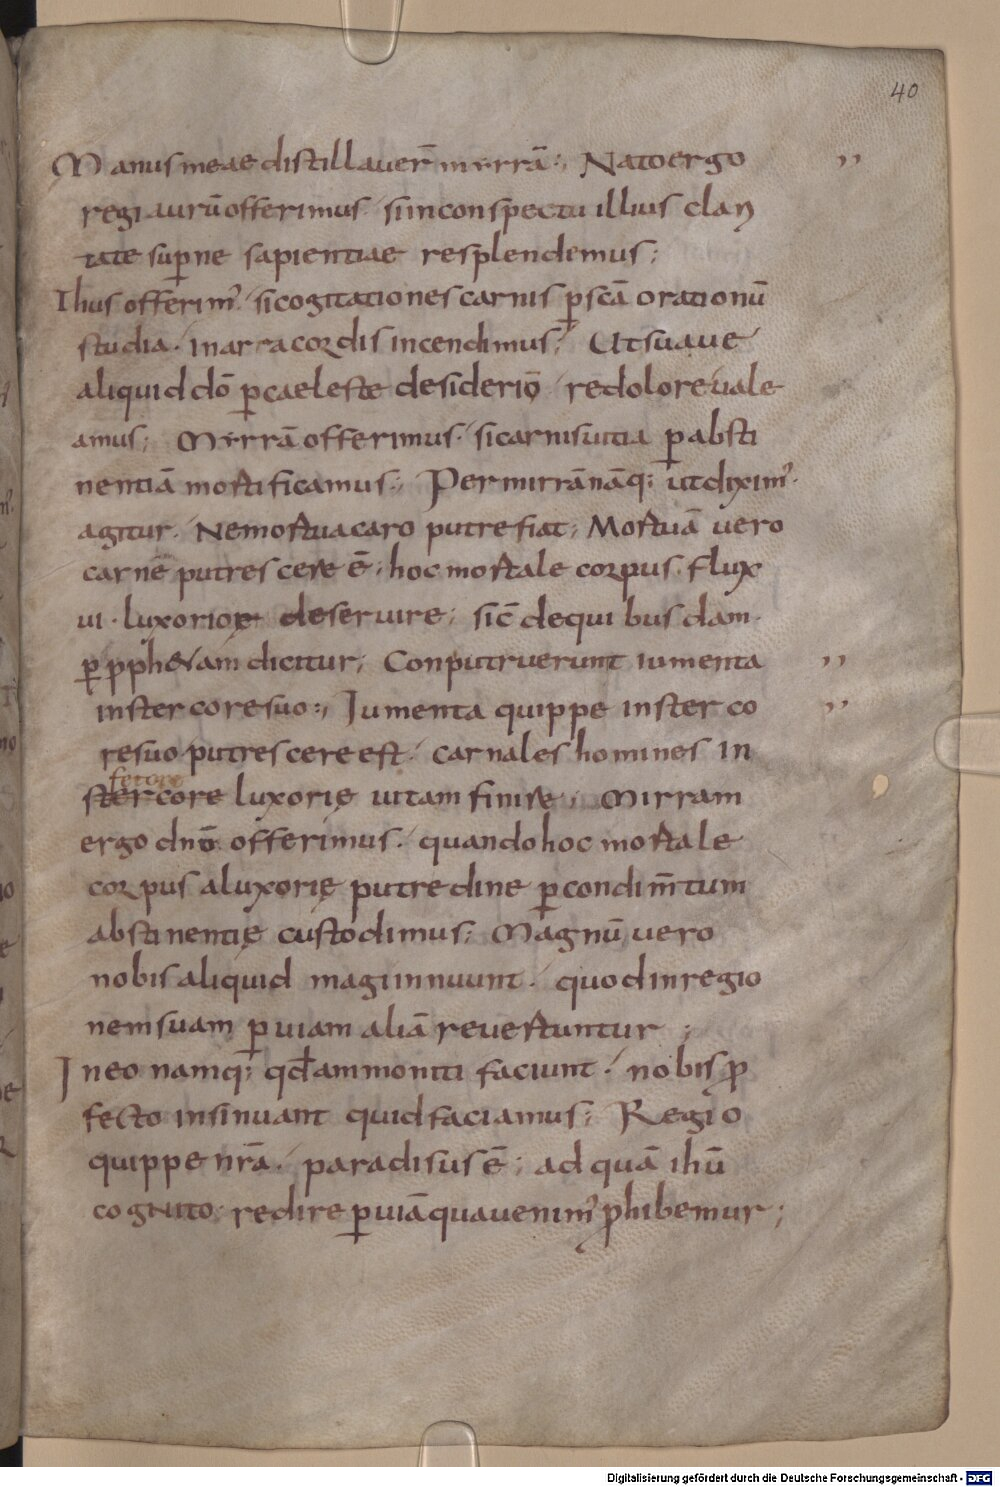 40
Manus meae distillauer̄ myrrā:, Nato ergo ,,
regi aurū offerimus. si in conspectu illius clari
tate sup̱ne sapientiae resplendemus;
Thus offerim᾽. si cogitationes carnis p̱ scā orationū
studia. in arra cordis incendimus; Ut suaue
aliquid dō p̱ caeleste desideriū redolere uale
amus; Myrrā offerimus. si carnis uitia p̱ absti
nentiā mortificamus:, Per mirrā nāq; ut dixim᾽.
agitur. Ne mortua caro putrefiat; Mortuā uero
carnē putrescere ē; hoc mortale corpus. flux
ui. luxorię deseruire; sic̄ de quibusdam.
p̱ pphetam dicitur; Conputruerunt iumenta ,,
in stercore suo:, Iumenta quippe in sterco ,,
re suo putrescere est. carnales homines in
fetore
stercore luxorię uitam finire; Mirram
ergo dnō offerimus. quando hoc mortale
corpus a luxorię putredine p̱ condim̄tum
abstinentię custodimus; Magnū uero
nobis aliquid magi innuunt. quod in regio
nem suam p̱ uiam aliā reuertuntur;
In eo namq; qd̄ ammoniti faciunt. nobis ꝓ
fecto insinuant quid faciamus; Regio
quippe nrā. paradisus ē; ad quā ihū
cognito. redire p̱ uiā qua uenim᾽ ꝓhibemur;
Digitalisierung gefördert durch die Deutsche Forschungsgemeinschaft - DFG